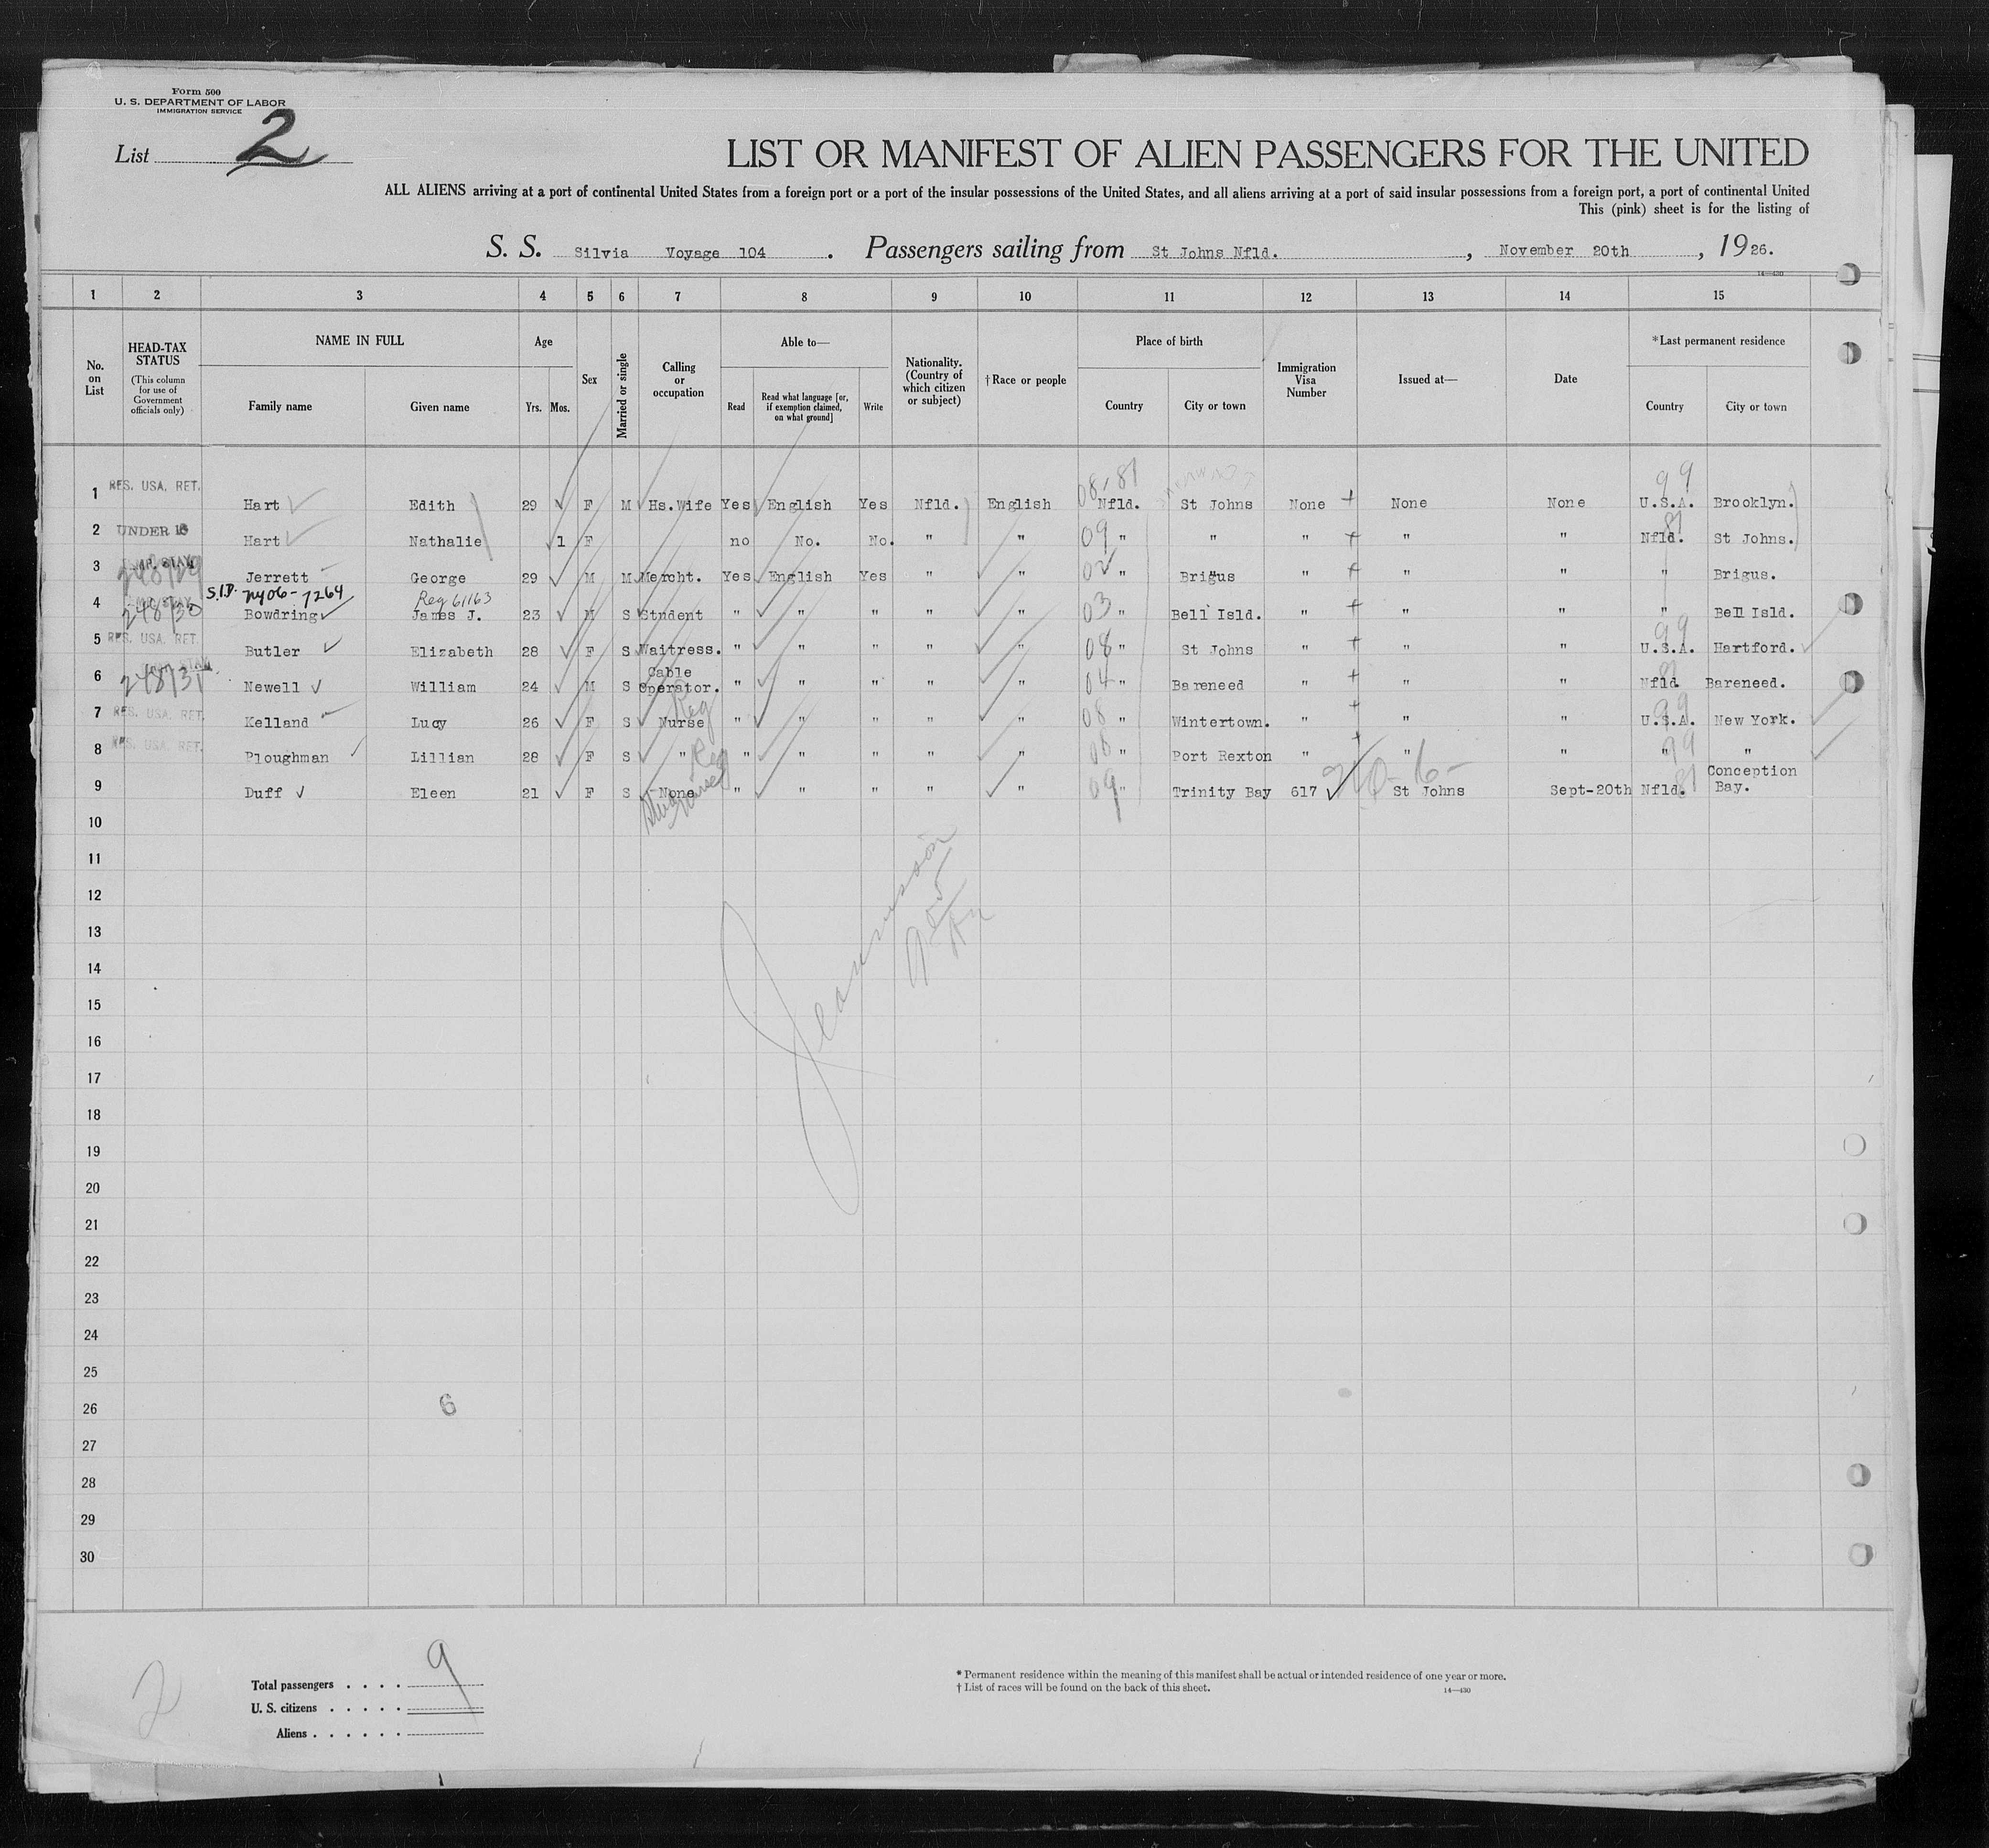 Form 500
U. S. DEPARTMENT OF LABOR
IMMIGRATION SERVICE
List 2
LIST OR MANIFEST OF ALIEN PASSENGERS FOR THE UNITED
ALL ALIENS arriving at a port of continental United States from a foreign port or a port of the insular possessions of the United States, and all aliens arriving at a port of said insular possessions from a foreign port, a port of continental United
This (pink) sheet is for the listing of
S. S. Silvia Voyage 104 . Passengers sailing from St Johns Nfld. , November 20th , 1926.
14—430
1 2 3 4 5 6 7 8 9 10 11 12 13 14 15
No. on List
HEAD-TAX STATUS (This column for use of Government officials only)
NAME IN FULL
Family name Given name
Age
Yrs. Mos.
Sex
Married or single
Calling or occupation
Able to—
Read
Read what language [or, if exemption claimed, on what ground]
Write
Nationality. (Country of which citizen or subject)
†Race or people
Place of birth
Country City or town
Immigration Visa Number
Issued at—
Date
*Last permanent residence
Country City or town
08-81 99
1 RES. USA. RET. Hart Edith 29 F M Hs.Wife Yes English Yes Nfld. English Nfld. St Johns None None None U.S.A. Brooklyn.
2 UNDER 16 Hart Nathalie 1 F no No. No. " " 09 " " " " " 81 Nfld. St Johns.
3 248129 Jerrett George 29 M M Mercht. Yes English Yes " " 02 " Brigus " " " " Brigus.
S.I.D. NY06-7264 Reg 61163
4 248130 Bowdring James J. 23 M S Student " " " " " 03 " Bell Isld. " " " " Bell Isld.
5 RES. USA. RET. Butler Elizabeth 28 F S Waitress. " " " " " 08 " St Johns " " " 99 U.S.A. Hartford.
6 248131 Newell William 24 M S Cable Operator. " " " " " 04 " Bareneed " " " 81 Nfld Bareneed.
7 RES. USA. RET. Kelland Lucy 26 F S Nurse Reg " " " " " 08 " Wintertown. " " " 99 U.S.A. New York.
8 RES. USA. RET. Ploughman Lillian 28 F S " Reg " " " " " 08 " Port Rexton " " " 99 " "
9 Duff Eleen 21 F S None " " " " " 09 " Trinity Bay 617 St Johns Sept-20th Nfld. 81 Conception Bay.
10
11
12
13
14
15
16
17
18
19
20
21
22
23
24
25
26 6
27
28
29
30
2
Total passengers . . . . 9
U. S. citizens . . . . .
Aliens . . . . . .
* Permanent residence within the meaning of this manifest shall be actual or intended residence of one year or more.
† List of races will be found on the back of this sheet.
14—430